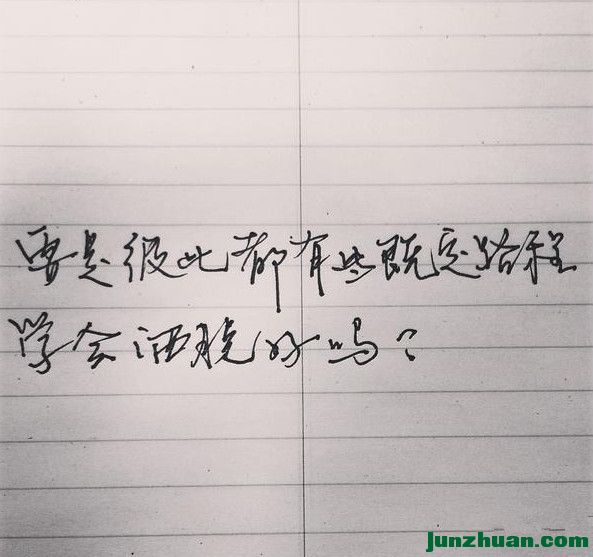 要是彼此都有些既定路程
学会洒脱好吗？
junzhuan.com